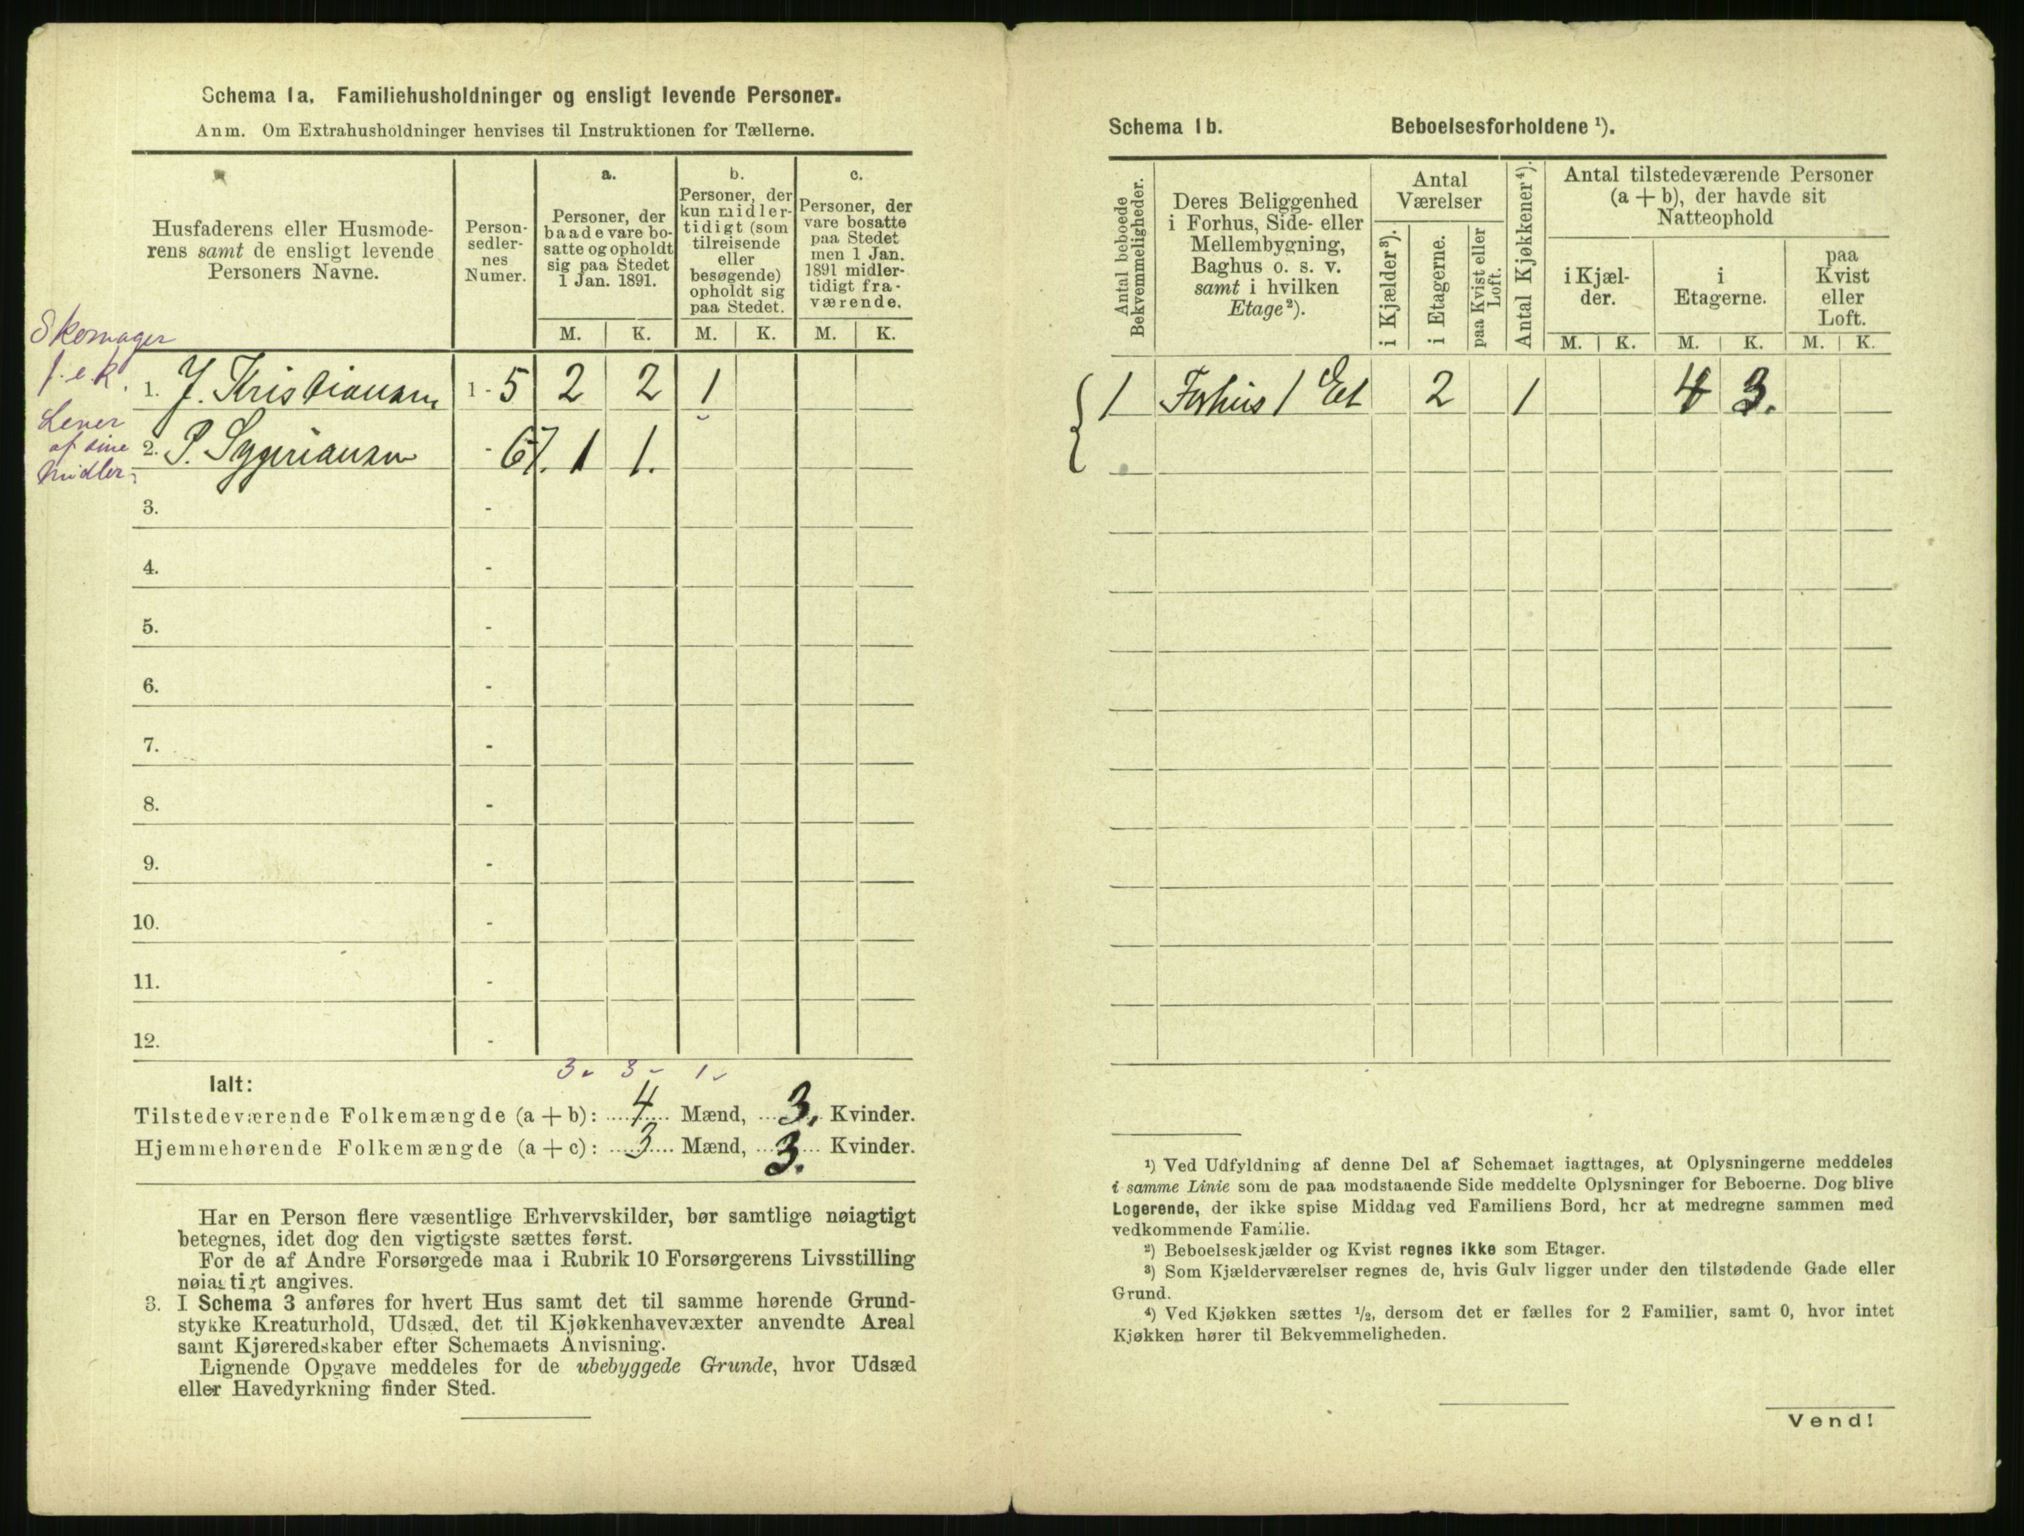 Schema 1a. Familiehusholdninger og ensligt levende Personer.
Anm. Om Extrahusholdninger henvises til Instruktionen for Tællerne.
Husfaderens eller Husmode-
rens samt de ensligt levende
Personers Navne.
Person-
sedler-
nes
Numer.
a.
Personer, der
baade vare bo-
satte og opholdt
sig paa Stedet
1 Jan. 1891.
b.
Personer, der
kun midler-
tidigt (som
tilreisende
eller
besøgende)
opholdt sig
paa Stedet.
c.
Personer, der
vare bosatte
paa Stedet
men 1 Jan.
1891 midler-
tidigt fra-
værende.
M. K. M. K. M. K.
Skomager
f.e.k.
1. J. Kristiansen 1 - 5 2 2 1
Lever
af sine
Midler
2. P. - 67. 1 1.
3. -
4. -
5. -
6. -
7. -
8. -
9. -
10. -
11. -
12. -
3 3 1
Ialt:
Tilstedeværende Folkemængde (a + b): 4 Mænd, 3. Kvinder.
Hjemmehørende Folkemængde (a + c): 3 Mænd, 3. Kvinder.
Har en Person flere væsentlige Erhvervskilder, bør samtlige nøiagtigt
betegnes, idet dog den vigtigste sættes først.
For de af Andre Forsørgede maa i Rubrik 10 Forsørgerens Livsstilling
nøiagtigt angives.
3. I Schema 3 anføres for hvert Hus samt det til samme hørende Grund-
stykke Kreaturhold, Udsæd, det til Kjøkkenhavevæxter anvendte Areal
samt Kjøreredskaber efter Schemaets Anvisning.
Lignende Opgave meddeles for de ubebyggede Grunde, hvor Udsæd
eller Havedyrkning finder Sted.
Schema 1b. Beboelsesforholdene ¹).
Antal beboede
Bekvemmeligheder.
Deres Beliggenhed
i Forhus, Side- eller
Mellembygning,
Baghus o. s. v.
samt i hvilken
Etage²).
Antal
Værelser
i Kjælder³).
i Etagerne.
paa Kvist eller
Loft.
Antal Kjøkkener⁴).
Antal tilstedeværende Personer
(a + b), der havde sit
Natteophold
i Kjæl-
der.
i
Etagerne.
paa
Kvist
eller
Loft.
M. K. M. K. M. K.
1 Forhus 1 Et 2 1 4 3.
¹) Ved Udfyldning af denne Del af Schemaet iagttages, at Oplysningerne meddeles
i samme Linie som de paa modstaaende Side meddelte Oplysninger for Beboerne. Dog blive
Logerende, der ikke spise Middag ved Familiens Bord, her at medregne sammen med
vedkommende Familie.
²) Beboelseskjælder og Kvist regnes ikke som Etager.
³) Som Kjælderværelser regnes de, hvis Gulv ligger under den tilstødende Gade eller
Grund.
⁴) Ved Kjøkken sættes ½, dersom det er fælles for 2 Familier, samt 0, hvor intet
Kjøkken hører til Bekvemmeligheden.
Vend!